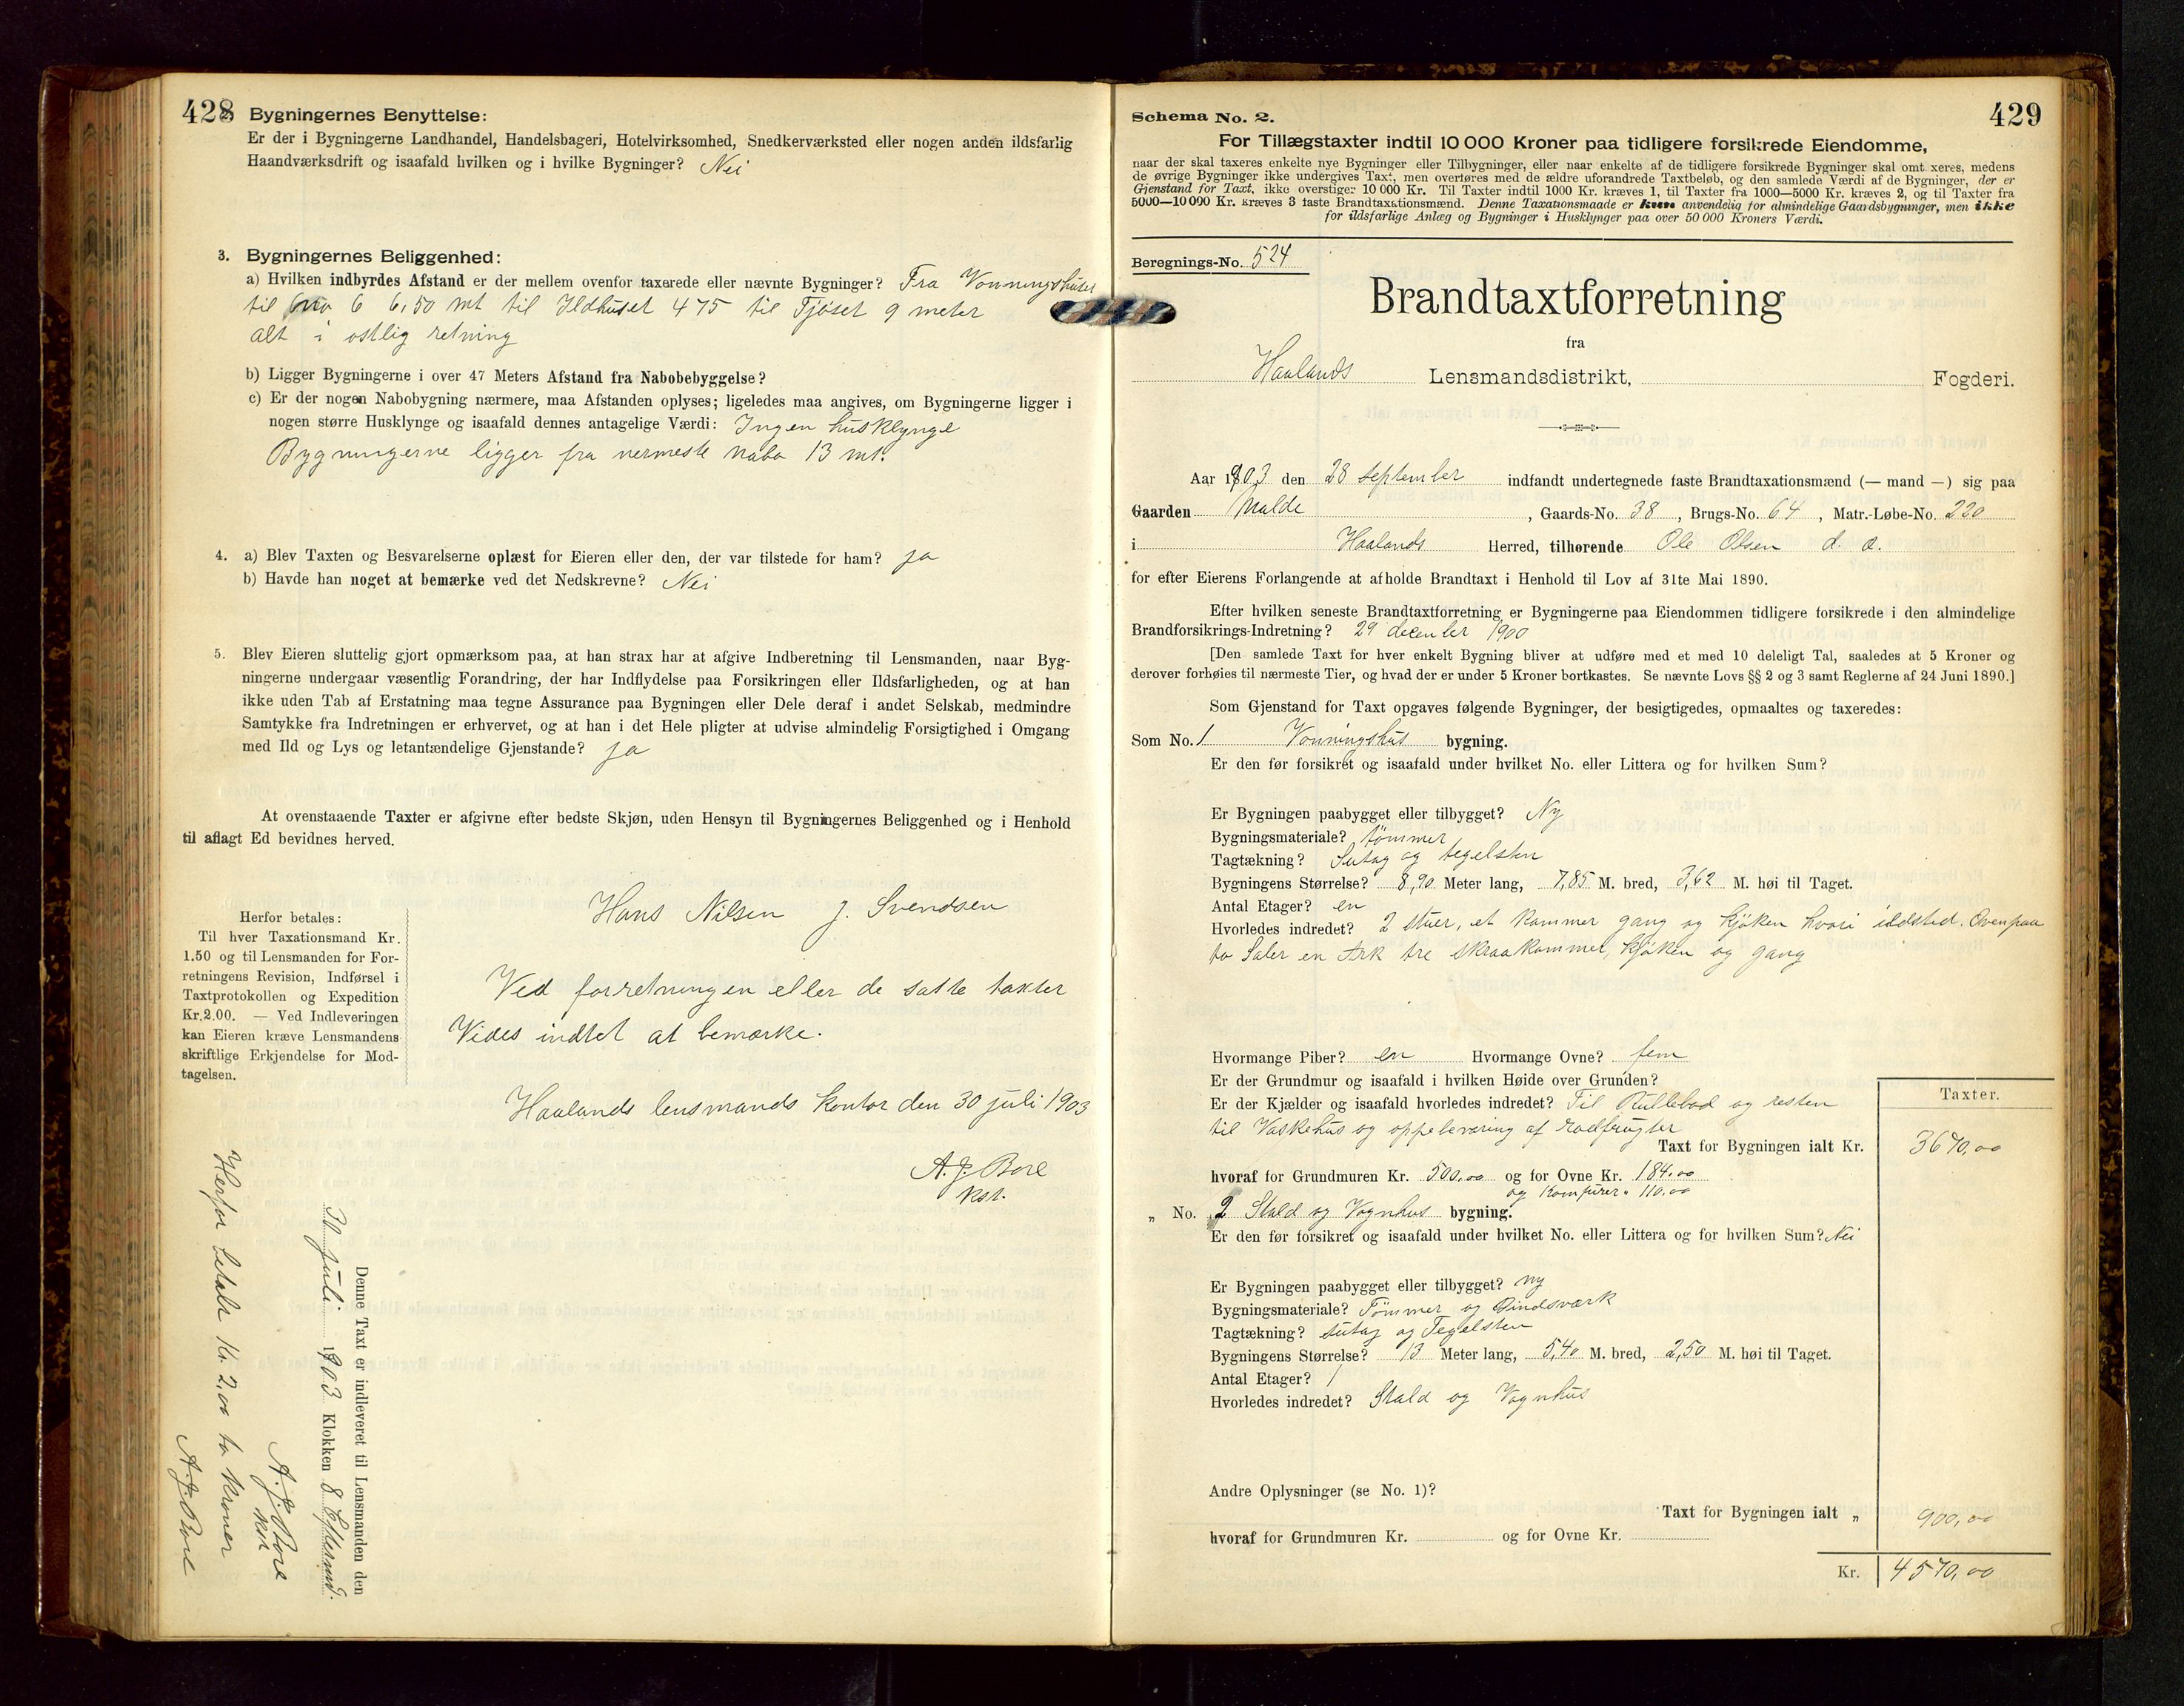 428 Bygningernes Benyttelse:
Er der i Bygningerne Landhandel, Handelsbageri, Hotelvirksomhed, Snedkerværksted eller nogen anden ildsfarlig
Haandværksdrift og isaafald hvilken og i hvilke Bygninger? Nei
3. Bygningernes Beliggenhed:
a) Hvilken indbyrdes Afstand er der mellem ovenfor taxerede eller nævnte Bygninger? Fra Vonningshuset
til No 6 6,50 mt til Ildhuset 475 til Fjøset 9 meter
alt i østlig retning
b) Ligger Bygningerne i over 47 Meters Afstand fra Nabobebyggelse?
c) Er der nogen Nabobygning nærmere, maa Afstanden oplyses; ligeledes maa angives, om Bygningerne ligger i
nogen større Husklynge og isaafald dennes antagelige Værdi: Ingen husklynge
Bygningerne ligger fra nermeste nabo 13 mt.
4. a) Blev Taxten og Besvarelserne oplæst for Eieren eller den, der var tilstede for ham? ja
b) Havde han noget at bemærke ved det Nedskrevne? Nei
5. Blev Eieren sluttelig gjort opmærksom paa, at han strax har at afgive Indberetning til Lensmanden, naar Byg-
ningerne undergaar væsentlig Forandring, der har Indflydelse paa Forsikringen eller Ildsfarligheden, og at han
ikke uden Tab af Erstatning maa tegne Assurance paa Bygningen eller Dele deraf i andet Selskab, medmindre
Samtykke fra Indretningen er erhvervet, og at han i det Hele pligter at udvise almindelig Forsigtighed i Omgang
med Ild og Lys og letantændelige Gjenstande? ja
At ovenstaaende Taxter er afgivne efter bedste Skjøn, uden Hensyn til Bygningernes Beliggenhed og i Henhold
til aflagt Ed bevidnes herved.
Hans Nilsen J. Svendsen
Herfor betales:
Til hver Taxationsmand Kr.
1.50 og til Lensmanden for For-
retningens Revision, Indførsel i
Taxtprotokollen og Expedition
Kr.2.00. — Ved Indleveringen
kan Eieren kræve Lensmandens
skriftlige Erkjendelse for Mod-
tagelsen.
Ved forretningen eller de satte taxter
Vides indtet at bemærke.
Haalands lensmands kontor den 30 juli 1903
A. J. Bore
kst.
Denne Taxt er indleveret til Lensmanden den
30 juli 1903 Klokken 8 Eftermd.
A. J. Bore
kst
Herfor betalt Kr. 2,00 to Kroner
A. J. Bore
Schema No. 2. 429
For Tillægstaxter indtil 10 000 Kroner paa tidligere forsikrede Eiendomme,
naar der skal taxeres enkelte nye Bygninger eller Tilbygninger, eller naar enkelte af de tidligere forsikrede Bygninger skal omt xeres, medens
de øvrige Bygninger ikke undergives Taxt, men overtøres med de ældre uforandrede Taxtbeløb, og den samlede Værdi af de Bygninger, der er
Gjenstand for Taxt, ikke overstiger 10 000 Kr. Til Taxter indtil 1000 Kr. kræves 1, til Taxter fra 1000—5000 Kr. kræves 2, og til Taxter fra
5000—10 000 Kr. kræves 3 faste Brandtaxationsmænd. Denne Taxationsmaade er kun anvendelig for almindelige Gaardsbygninger, men ikke
for ildsfarlige Anlæg og Bygninger i Husklynger paa over 50 000 Kroners Værdi.
Beregnings-No. 524
Brandtaxtforretning
fra
Haalands Lensmandsdistrikt, Fogderi.
Aar 1903 den 28 september indfandt undertegnede faste Brandtaxationsmænd (— mand —) sig paa
Gaarden Malde, Gaards-No. 38, Brugs-No. 64, Matr.-Løbe-No. 220
i Haalands Herred, tilhørende Ole Olsen d. æ.
for efter Eierens Forlangende at afholde Brandtaxt i Henhold til Lov af 31te Mai 1890.
Efter hvilken seneste Brandtaxtforretning er Bygningerne paa Eiendommen tidligere forsikrede i den almindelige
Brandforsikrings-Indretning? 29 december 1900
[Den samlede Taxt for hver enkelt Bygning bliver at udføre med et med 10 deleligt Tal, saaledes at 5 Kroner og
derover forhøies til nærmeste Tier, og hvad der er under 5 Kroner bortkastes. Se nævnte Lovs §§ 2 og 3 samt Reglerne af 24 Juni 1890.]
Som Gjenstand for Taxt opgaves følgende Bygninger, der besigtigedes, opmaaltes og taxeredes:
Som No. 1 Vonningshus bygning.
Er den før forsikret og isaafald under hvilket No. eller Littera og for hvilken Sum?
Er Bygningen paabygget eller tilbygget? Ny
Bygningsmateriale? tømmer
Tagtækning? Sutag og tegelsten
Bygningens Størrelse? 8,90 Meter lang, 7,85 M. bred, 3,62 M. høi til Taget.
Antal Etager? en
Hvorledes indredet? 2 stuer, et kammer gang og kjøken hvori ildsted. Ovenpaa
to Saler en Ark tre skraakammer, kjøken og gang
Hvormange Piber? en Hvormange Ovne? fem
Er der Grundmur og isaafald i hvilken Høide over Grunden?
Er der Kjælder og isaafald hvorledes indredet? Til Rullebod og resten
til Vaskehus og oppebevaring af rodfrugter
Taxter.
Taxt for Bygningen ialt Kr. 3670,00
hvoraf for Grundmuren Kr. 500,00 og for Ovne Kr. 184,00
og Komfurer " 110,00
„ No. 2 Stald og Vognhus bygning.
Er den før forsikret og isaafald under hvilket No. eller Littera og for hvilken Sum? Nei
Er Bygningen paabygget eller tilbygget? ny
Bygningsmateriale? Tømmer og Bindsværk
Tagtækning? sutag og Tegelsten
Bygningens Størrelse? 13 Meter lang, 5,40 M. bred, 2,50 M. høi til Taget.
Antal Etager? 1
Hvorledes indredet? Stald og Vognhus
Andre Oplysninger (se No. 1)?
Taxt for Bygningen ialt „ 900,00
hvoraf for Grundmuren Kr. og for Ovne Kr.
Kr. 4570,00